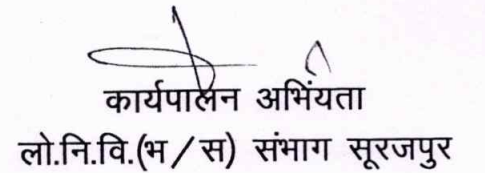 कार्यपालन अभिंयता
लो.नि.वि.(भ/स) संभाग सूरजपुर